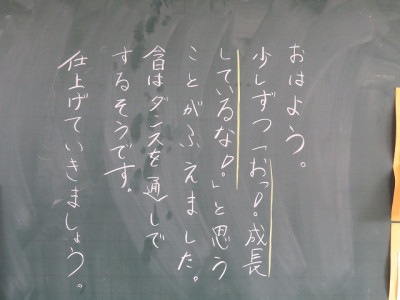 おはよう。
少しずつ「おっ!成長
しているな!」と思う
ことがふえました。
今日はダンスを通しで
するそうです。
仕上げていきましょう。